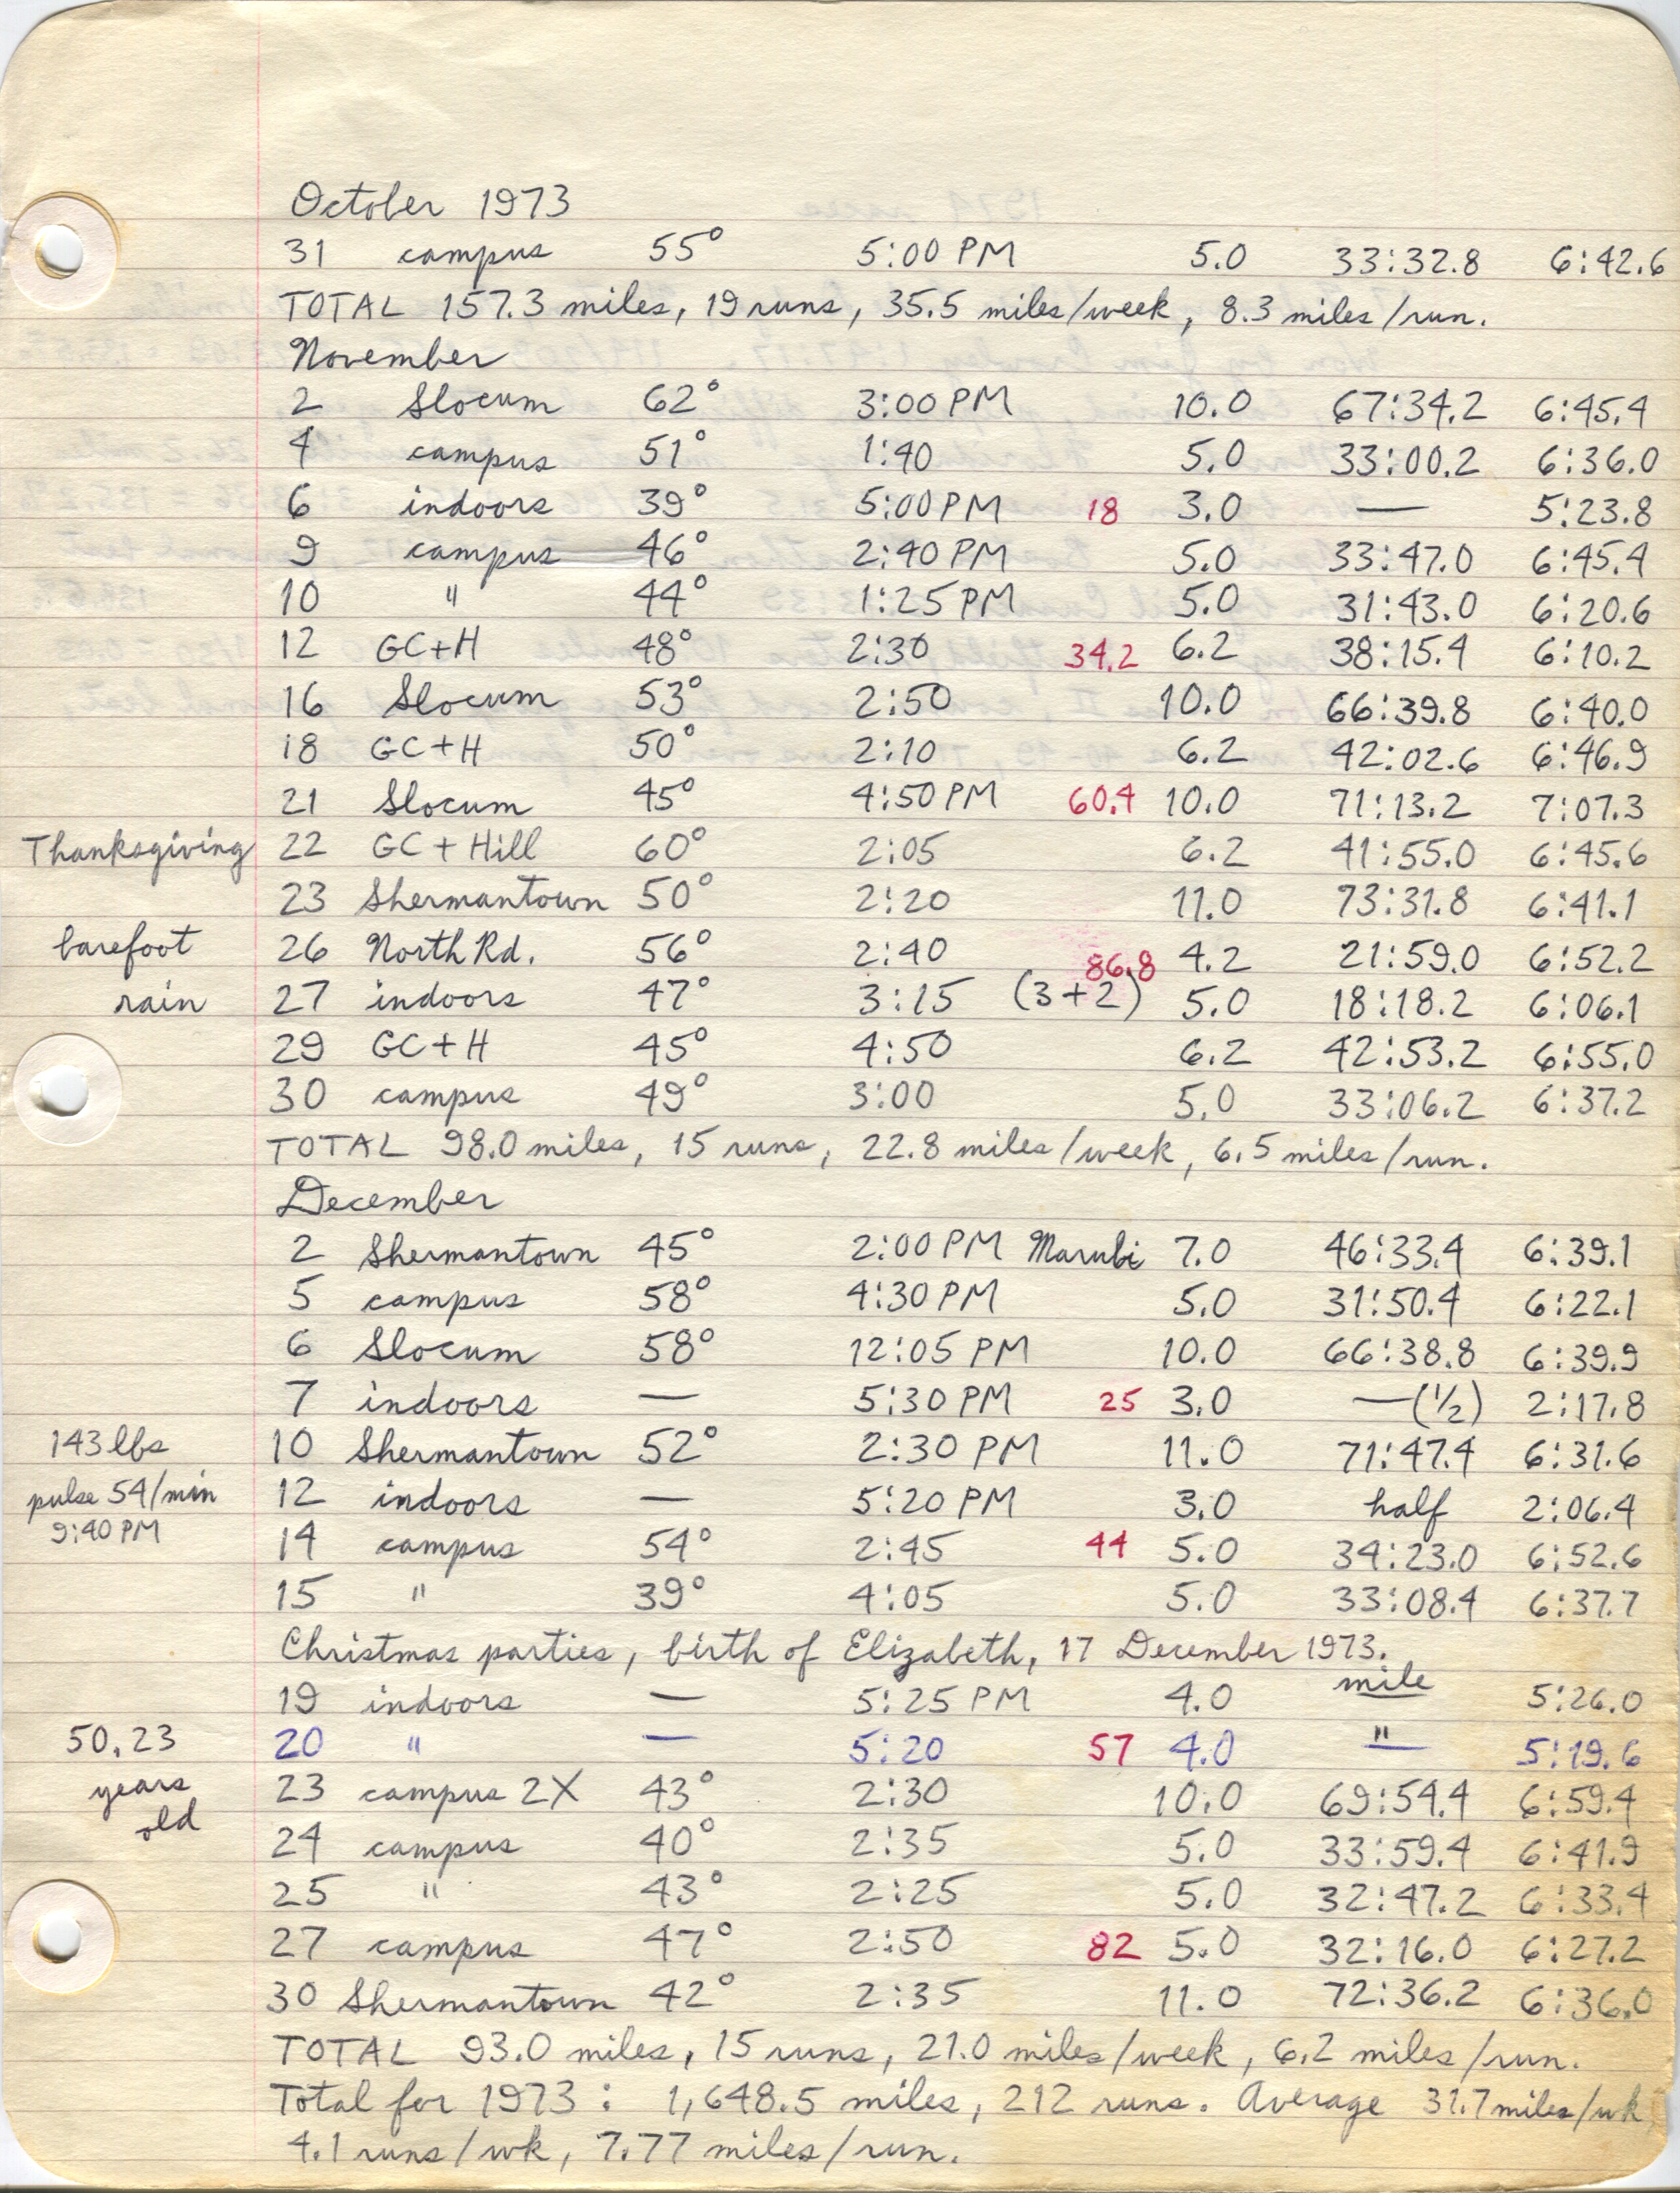 October 1973
31 campus 55° 5:00 PM 5.0 33:32.8 6:42.6
TOTAL 157.3 miles, 19 runs, 35.5 miles/week, 8.3 miles/run.
November
2 Slocum 62° 3:00 PM 10.0 67:34.2 6:45.4
4 campus 51° 1:40 5.0 33:00.2 6:36.0
6 indoors 39° 5:00 PM 18 3.0 — 5:23.8
9 campus 46° 2:40 PM 5.0 33:47.0 6:45.4
10 " 44° 1:25 PM 5.0 31:43.0 6:20.6
12 GC+H 48° 2:30 34.2 6.2 38:15.4 6:10.2
16 Slocum 53° 2:50 10.0 66:39.8 6:40.0
18 GC+H 50° 2:10 6.2 42:02.6 6:46.9
21 Slocum 45° 4:50 PM 60.4 10.0 71:13.2 7:07.3
Thanksgiving 22 GC + Hill 60° 2:05 6.2 41:55.0 6:45.6
23 Shermantown 50° 2:20 11.0 73:31.8 6:41.1
barefoot 26 North Rd. 56° 2:40 86.8 4.2 21:59.0 6:52.2
rain 27 indoors 47° 3:15 (3+2) 5.0 18:18.2 6:06.1
29 GC+H 45° 4:50 6.2 42:53.2 6:55.0
30 campus 49° 3:00 5.0 33:06.2 6:37.2
TOTAL 98.0 miles, 15 runs, 22.8 miles/week, 6.5 miles/run.
December
2 Shermantown 45° 2:00 PM Marubi 7.0 46:33.4 6:39.1
5 campus 58° 4:30 PM 5.0 31:50.4 6:22.1
6 Slocum 58° 12:05 PM 10.0 66:38.8 6:39.9
7 indoors — 5:30 PM 25 3.0 —(1/2) 2:17.8
143 lbs 10 Shermantown 52° 2:30 PM 11.0 71:47.4 6:31.6
pulse 54/min 12 indoors — 5:20 PM 3.0 half 2:06.4
9:40 PM 14 campus 54° 2:45 44 5.0 34:23.0 6:52.6
15 " 39° 4:05 5.0 33:08.4 6:37.7
Christmas parties, birth of Elizabeth, 17 December 1973.
19 indoors — 5:25 PM 4.0 mile 5:26.0
50.23 20 " — 5:20 57 4.0 " 5:19.6
years 23 campus 2X 43° 2:30 10.0 69:54.4 6:59.4
old 24 campus 40° 2:35 5.0 33:59.4 6:41.9
25 " 43° 2:25 5.0 32:47.2 6:33.4
27 campus 47° 2:50 82 5.0 32:16.0 6:27.2
30 Shermantown 42° 2:35 11.0 72:36.2 6:36.0
TOTAL 93.0 miles, 15 runs, 21.0 miles/week, 6.2 miles/run.
Total for 1973: 1,648.5 miles, 212 runs. Average 31.7 miles/wk,
4.1 runs/wk, 7.77 miles/run.